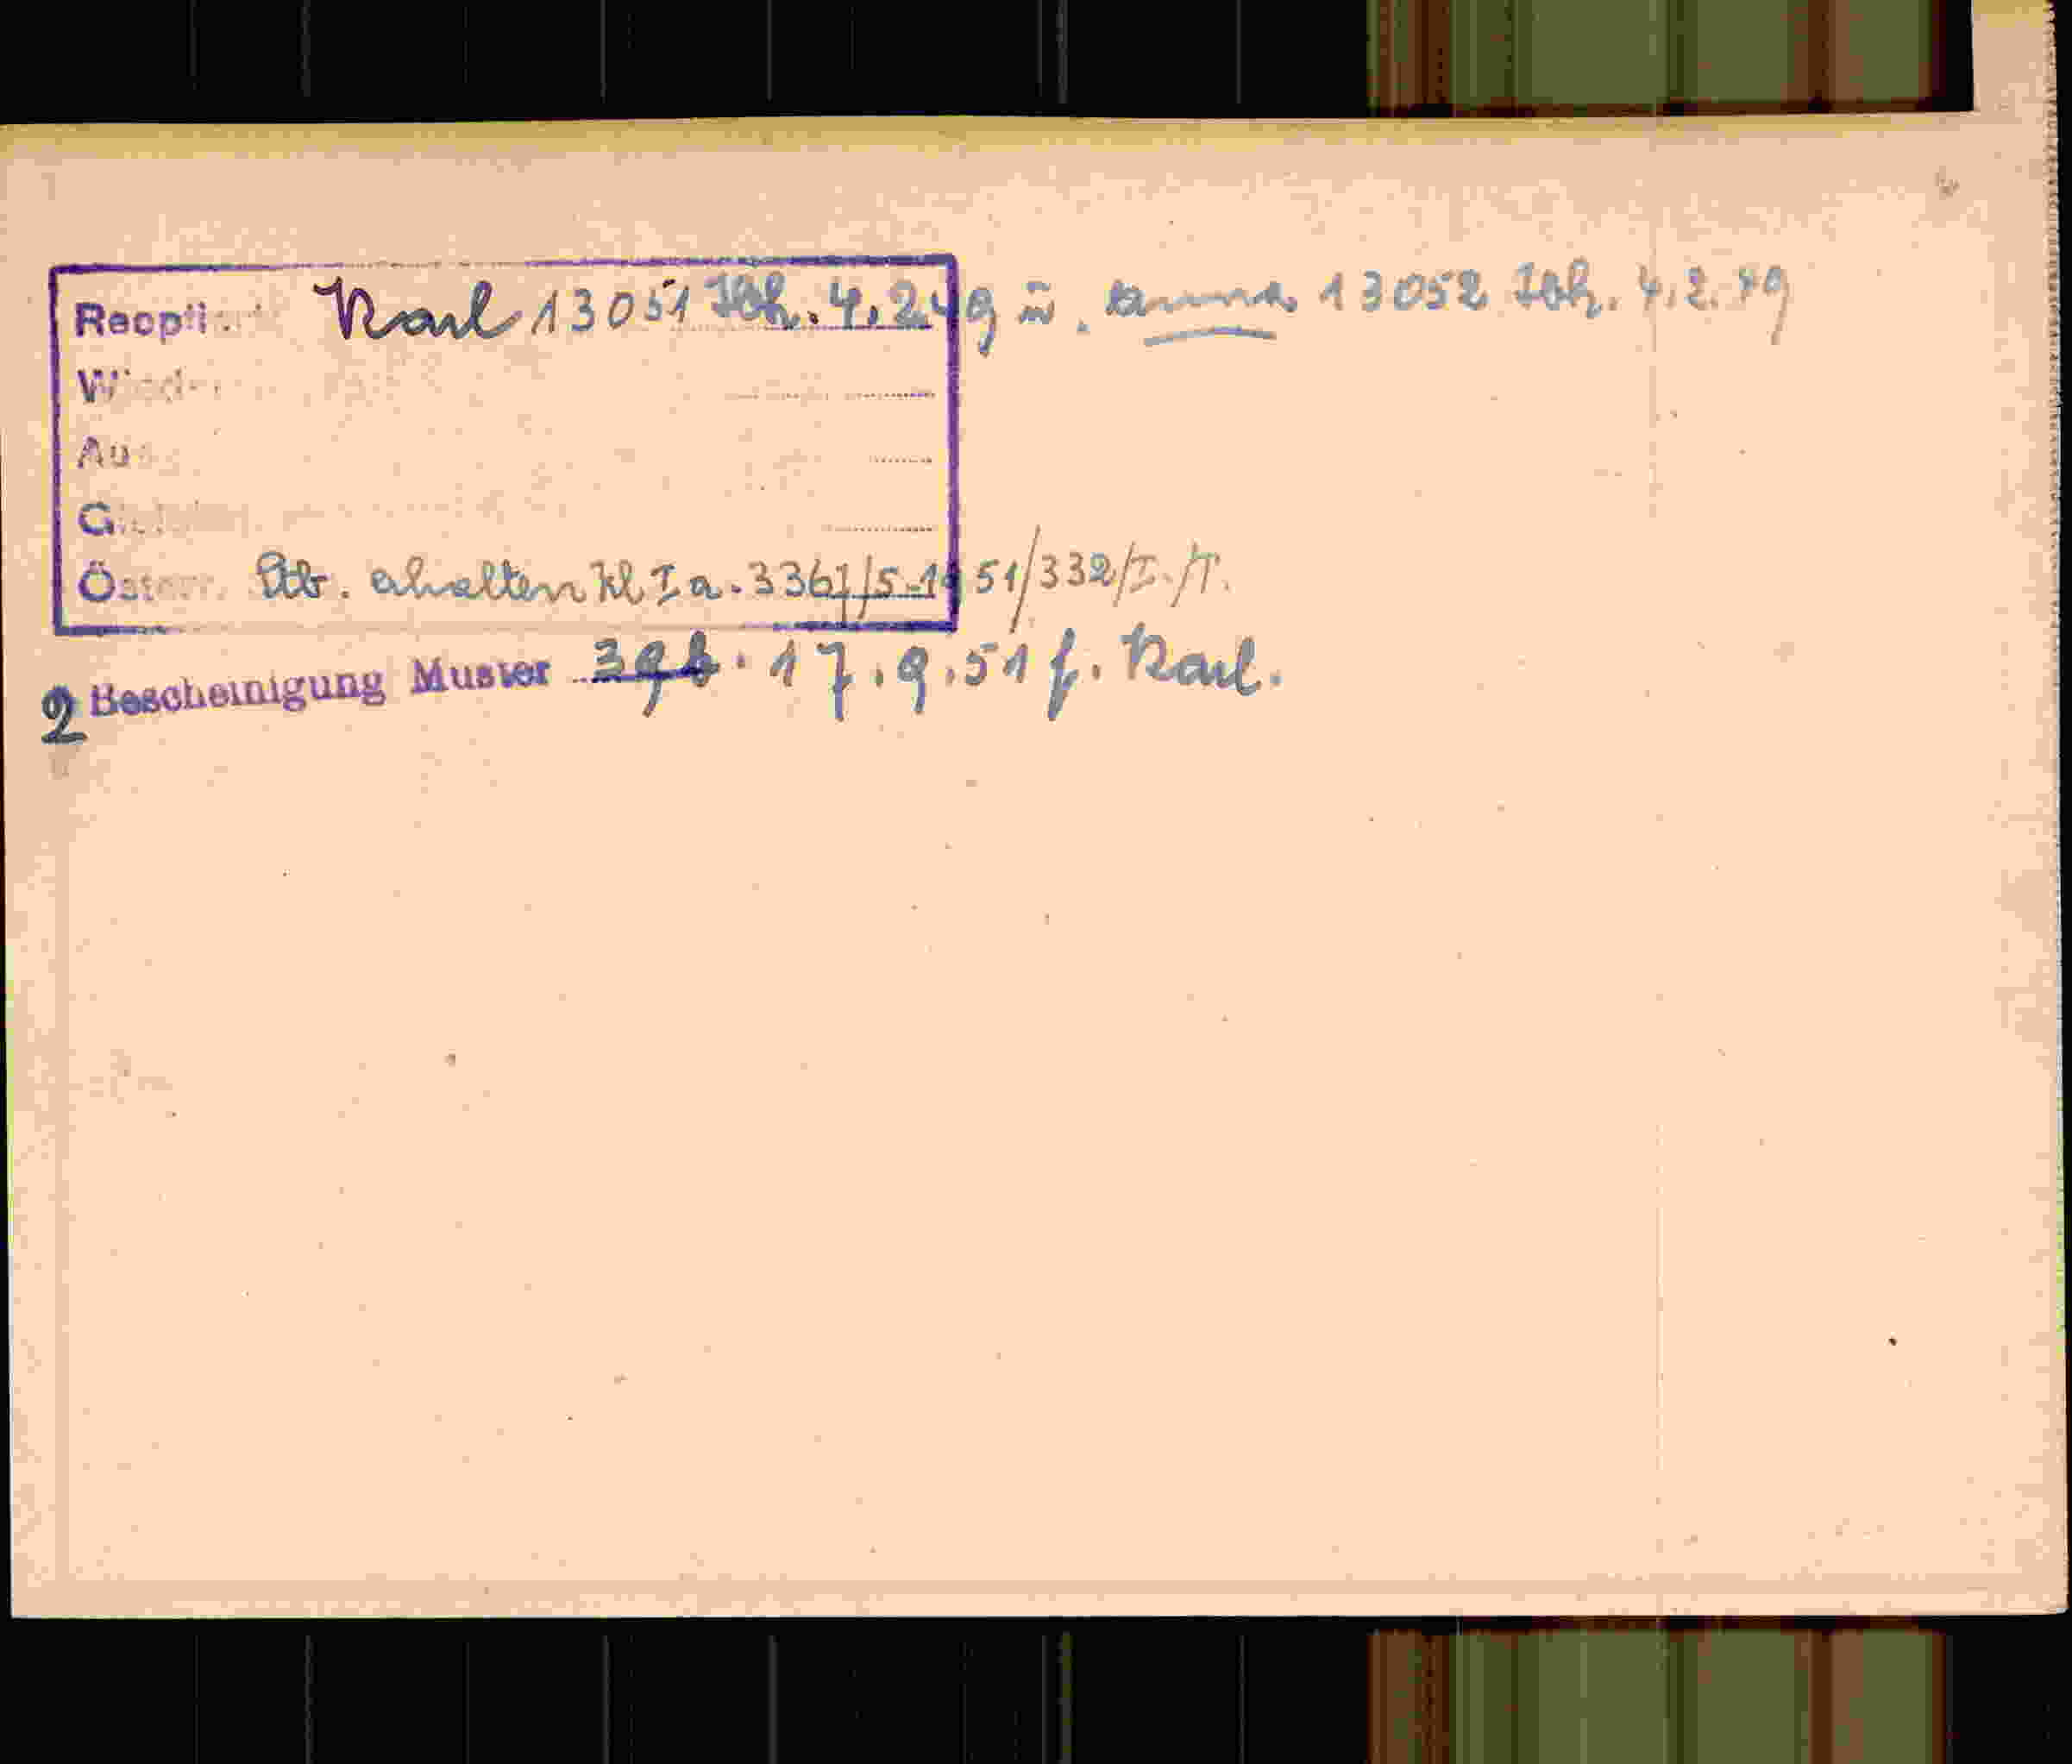 Reopti Karl 13051 Ibh. 4.2.49 ü. Anna 13052 Ibh. 4.2.49
Wieder
Au
G
Österr. Stb. erhalten Kl I a. 3367/5-1951/332/I./T.
2 Bescheinigung Muster 39b. 17.9.51 f. Karl.